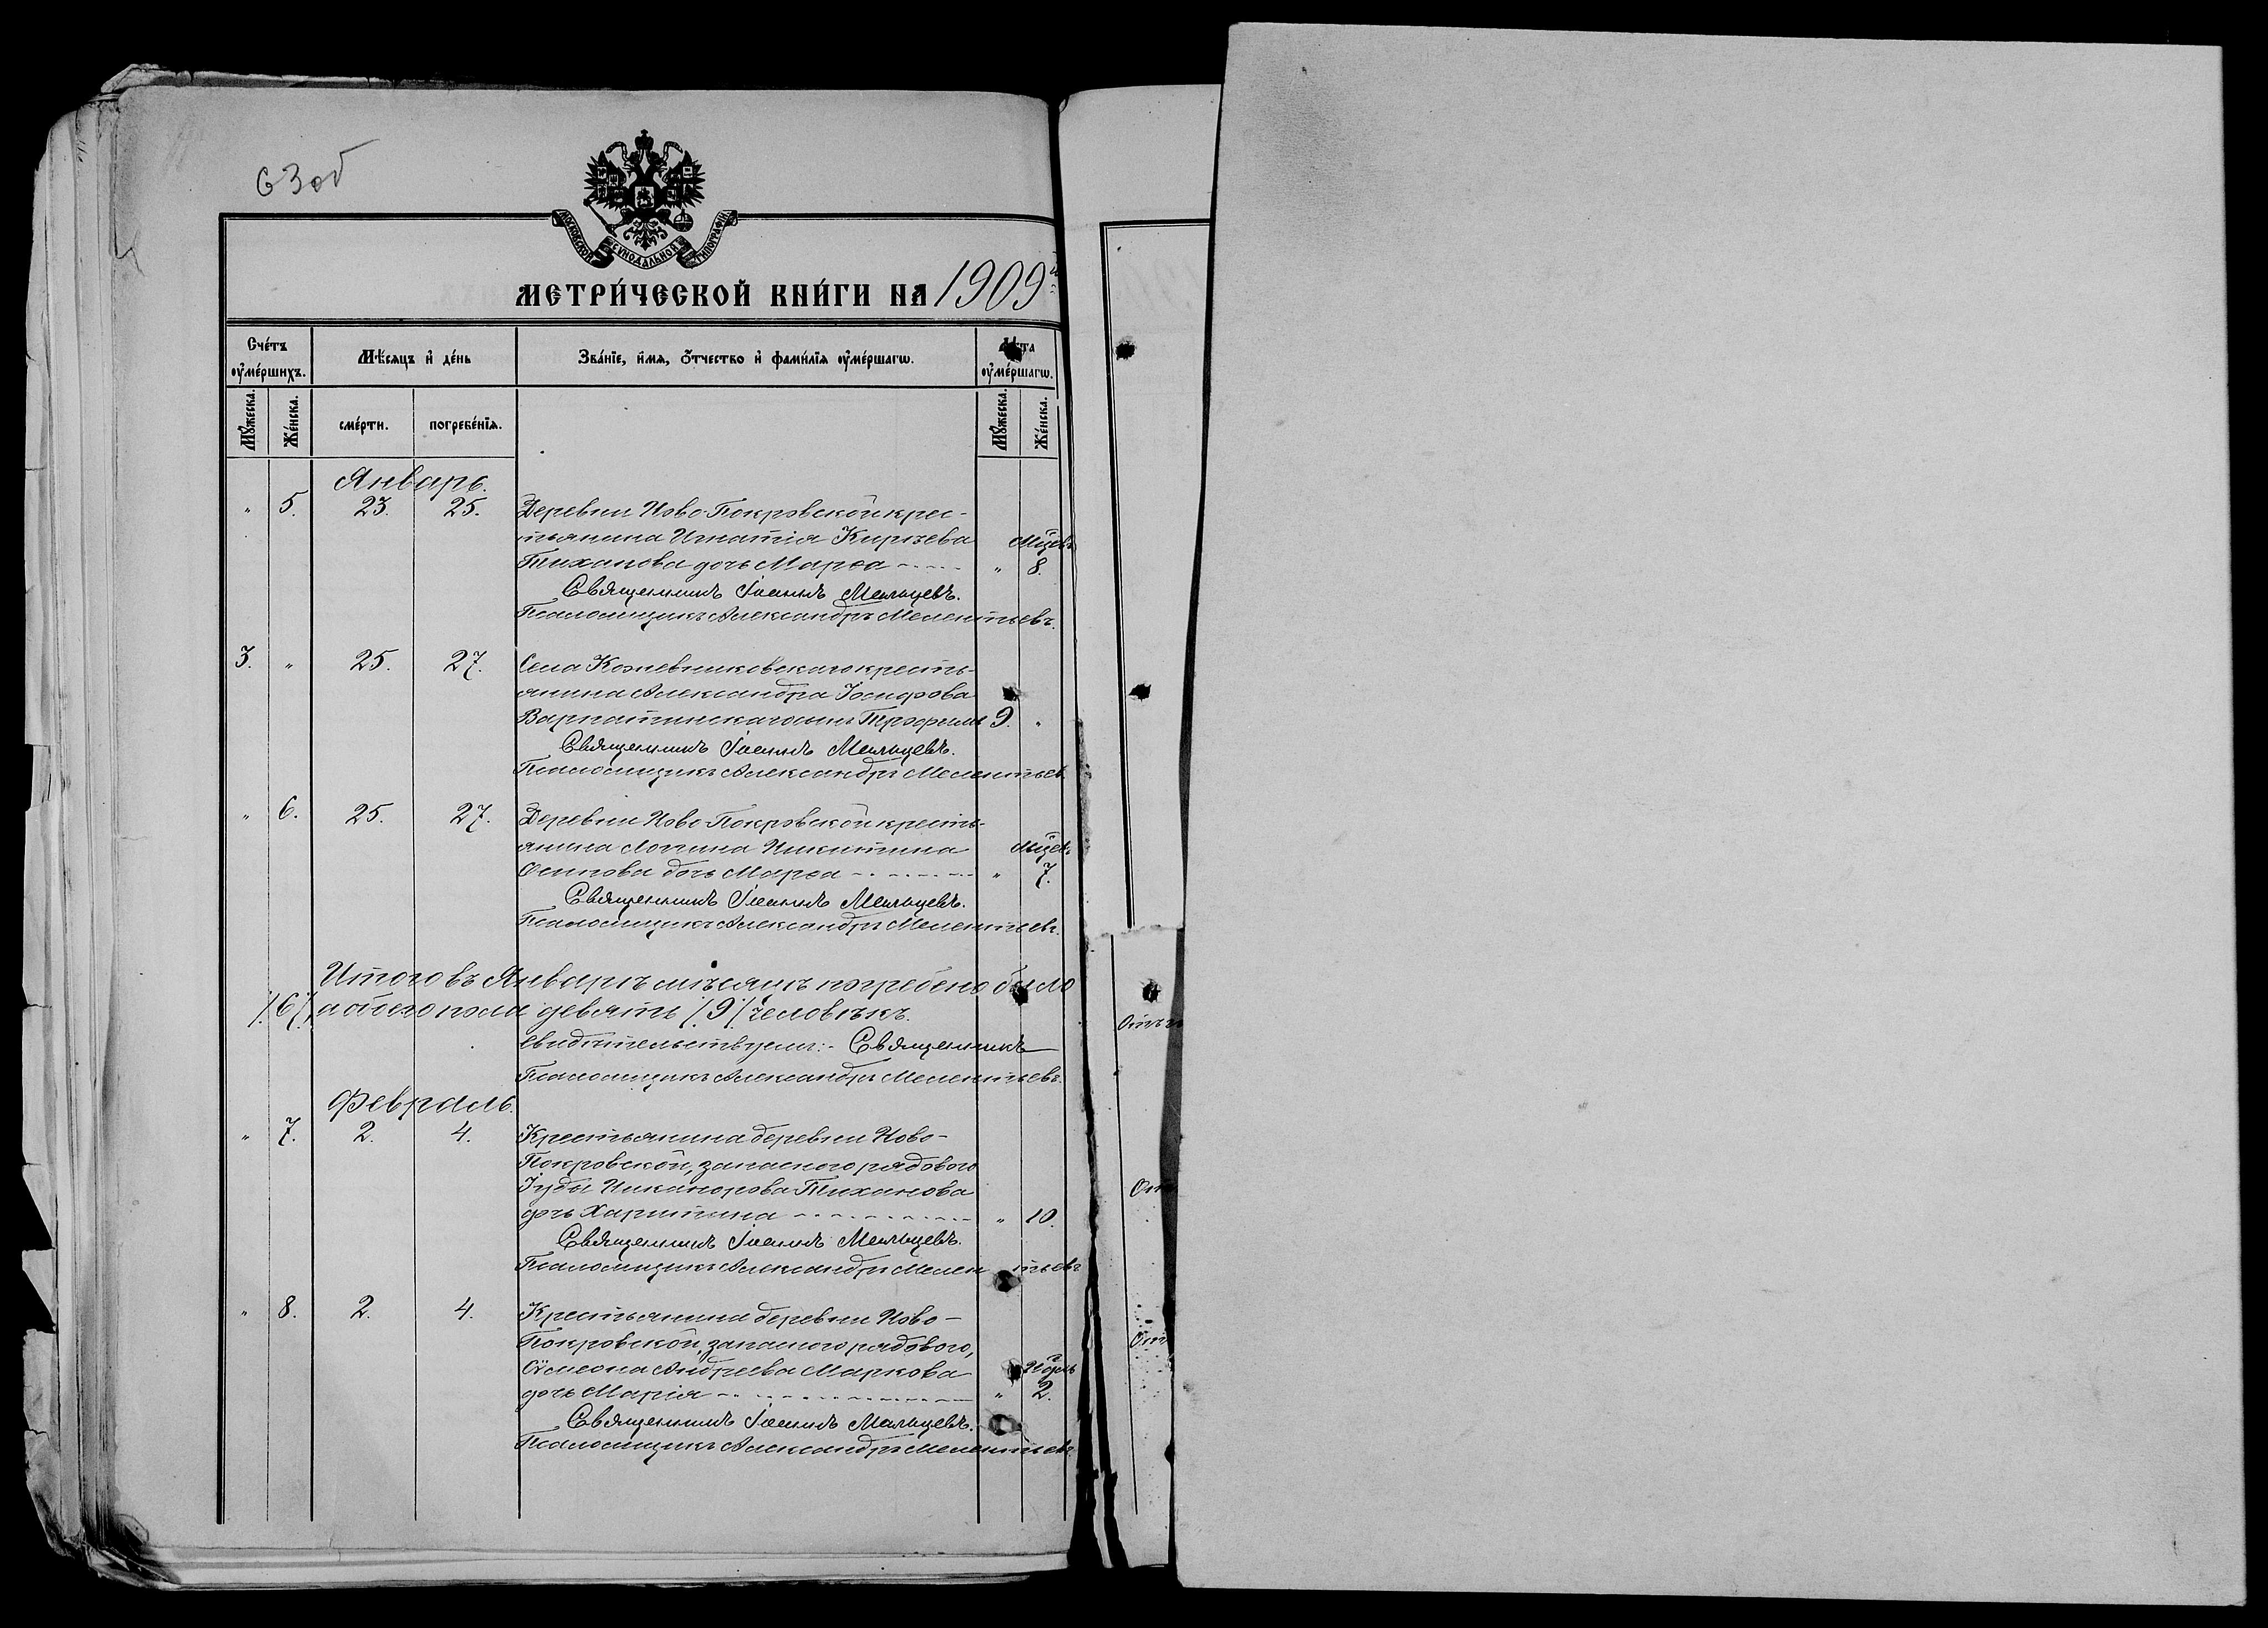 63об
МОСКОВСКОЙ СѴНОДАЛЬНОЙ ТИПОГРАФІИ
МЕТРИ́ЧЕСКОЙ КНИ́ГИ НА 1909й
Сче́тъ оу҆ме́ршихъ.
Мѣ́сяцъ и҆ де́нь
Зва́нїе, и҆́мя, ѻ҆́тчество и҆ фами́лїя оу҆ме́ршагѡ.
Лѣ́та оу҆ме́ршагѡ.
Мꙋ́жеска.
Же́нска.
сме́рти.
погребе́нїя.
Мꙋ́жеска.
Же́нска.
Январь.
" 5. 23. 25. Деревни Ново-Покровской крес-
тьянина Игнатія Кирѣева Мцевъ
Тиханова дочь Марѳа " 8.
Священникъ Іоаннъ Мальцевъ.
Псаломщикъ Александръ Мелентьевъ.
3. " 25. 27. Села Кожевниковскаго кресть-
янина Александра Іосифова
Варпатинскаго сынъ Трофимъ 9. "
Священникъ Іоаннъ Мальцевъ.
Псаломщикъ Александръ Мелентьевъ
" 6. 25. 27. Деревни Ново-Покровской кресть-
янина Логгина Никитина Мцевъ
Осипова дочь Марѳа " 7.
Священникъ Іоаннъ Мальцевъ.
Псаломщикъ Александръ Мелентьевъ.
Итого въ Январѣ мѣсяцѣ погребено было
/6/ обоего пола девять /9/ человѣкъ.
Свидѣтельствуемъ:- Священникъ
Псаломщикъ Александръ Мелентьевъ.
Февраль.
" 7. 2. 4. Крестьянина деревни Ново-
Покровской, запасного рядового
Іуды Никанорова Тиханова
дочь Харитина " 10.
Священникъ Іоаннъ Мальцевъ.
Псаломщикъ Александръ Мелентьевъ
" 8. 2. 4. Крестьянина деревни Ново-
Покровской, запасного рядового,
Сѵмеона Андреева Маркова
дочь Марія " 2.
Священникъ Іоаннъ Мальцевъ.
Псаломщикъ Александръ Мелентьевъ